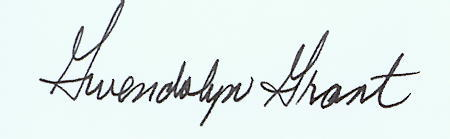 Gwendolyn Grant